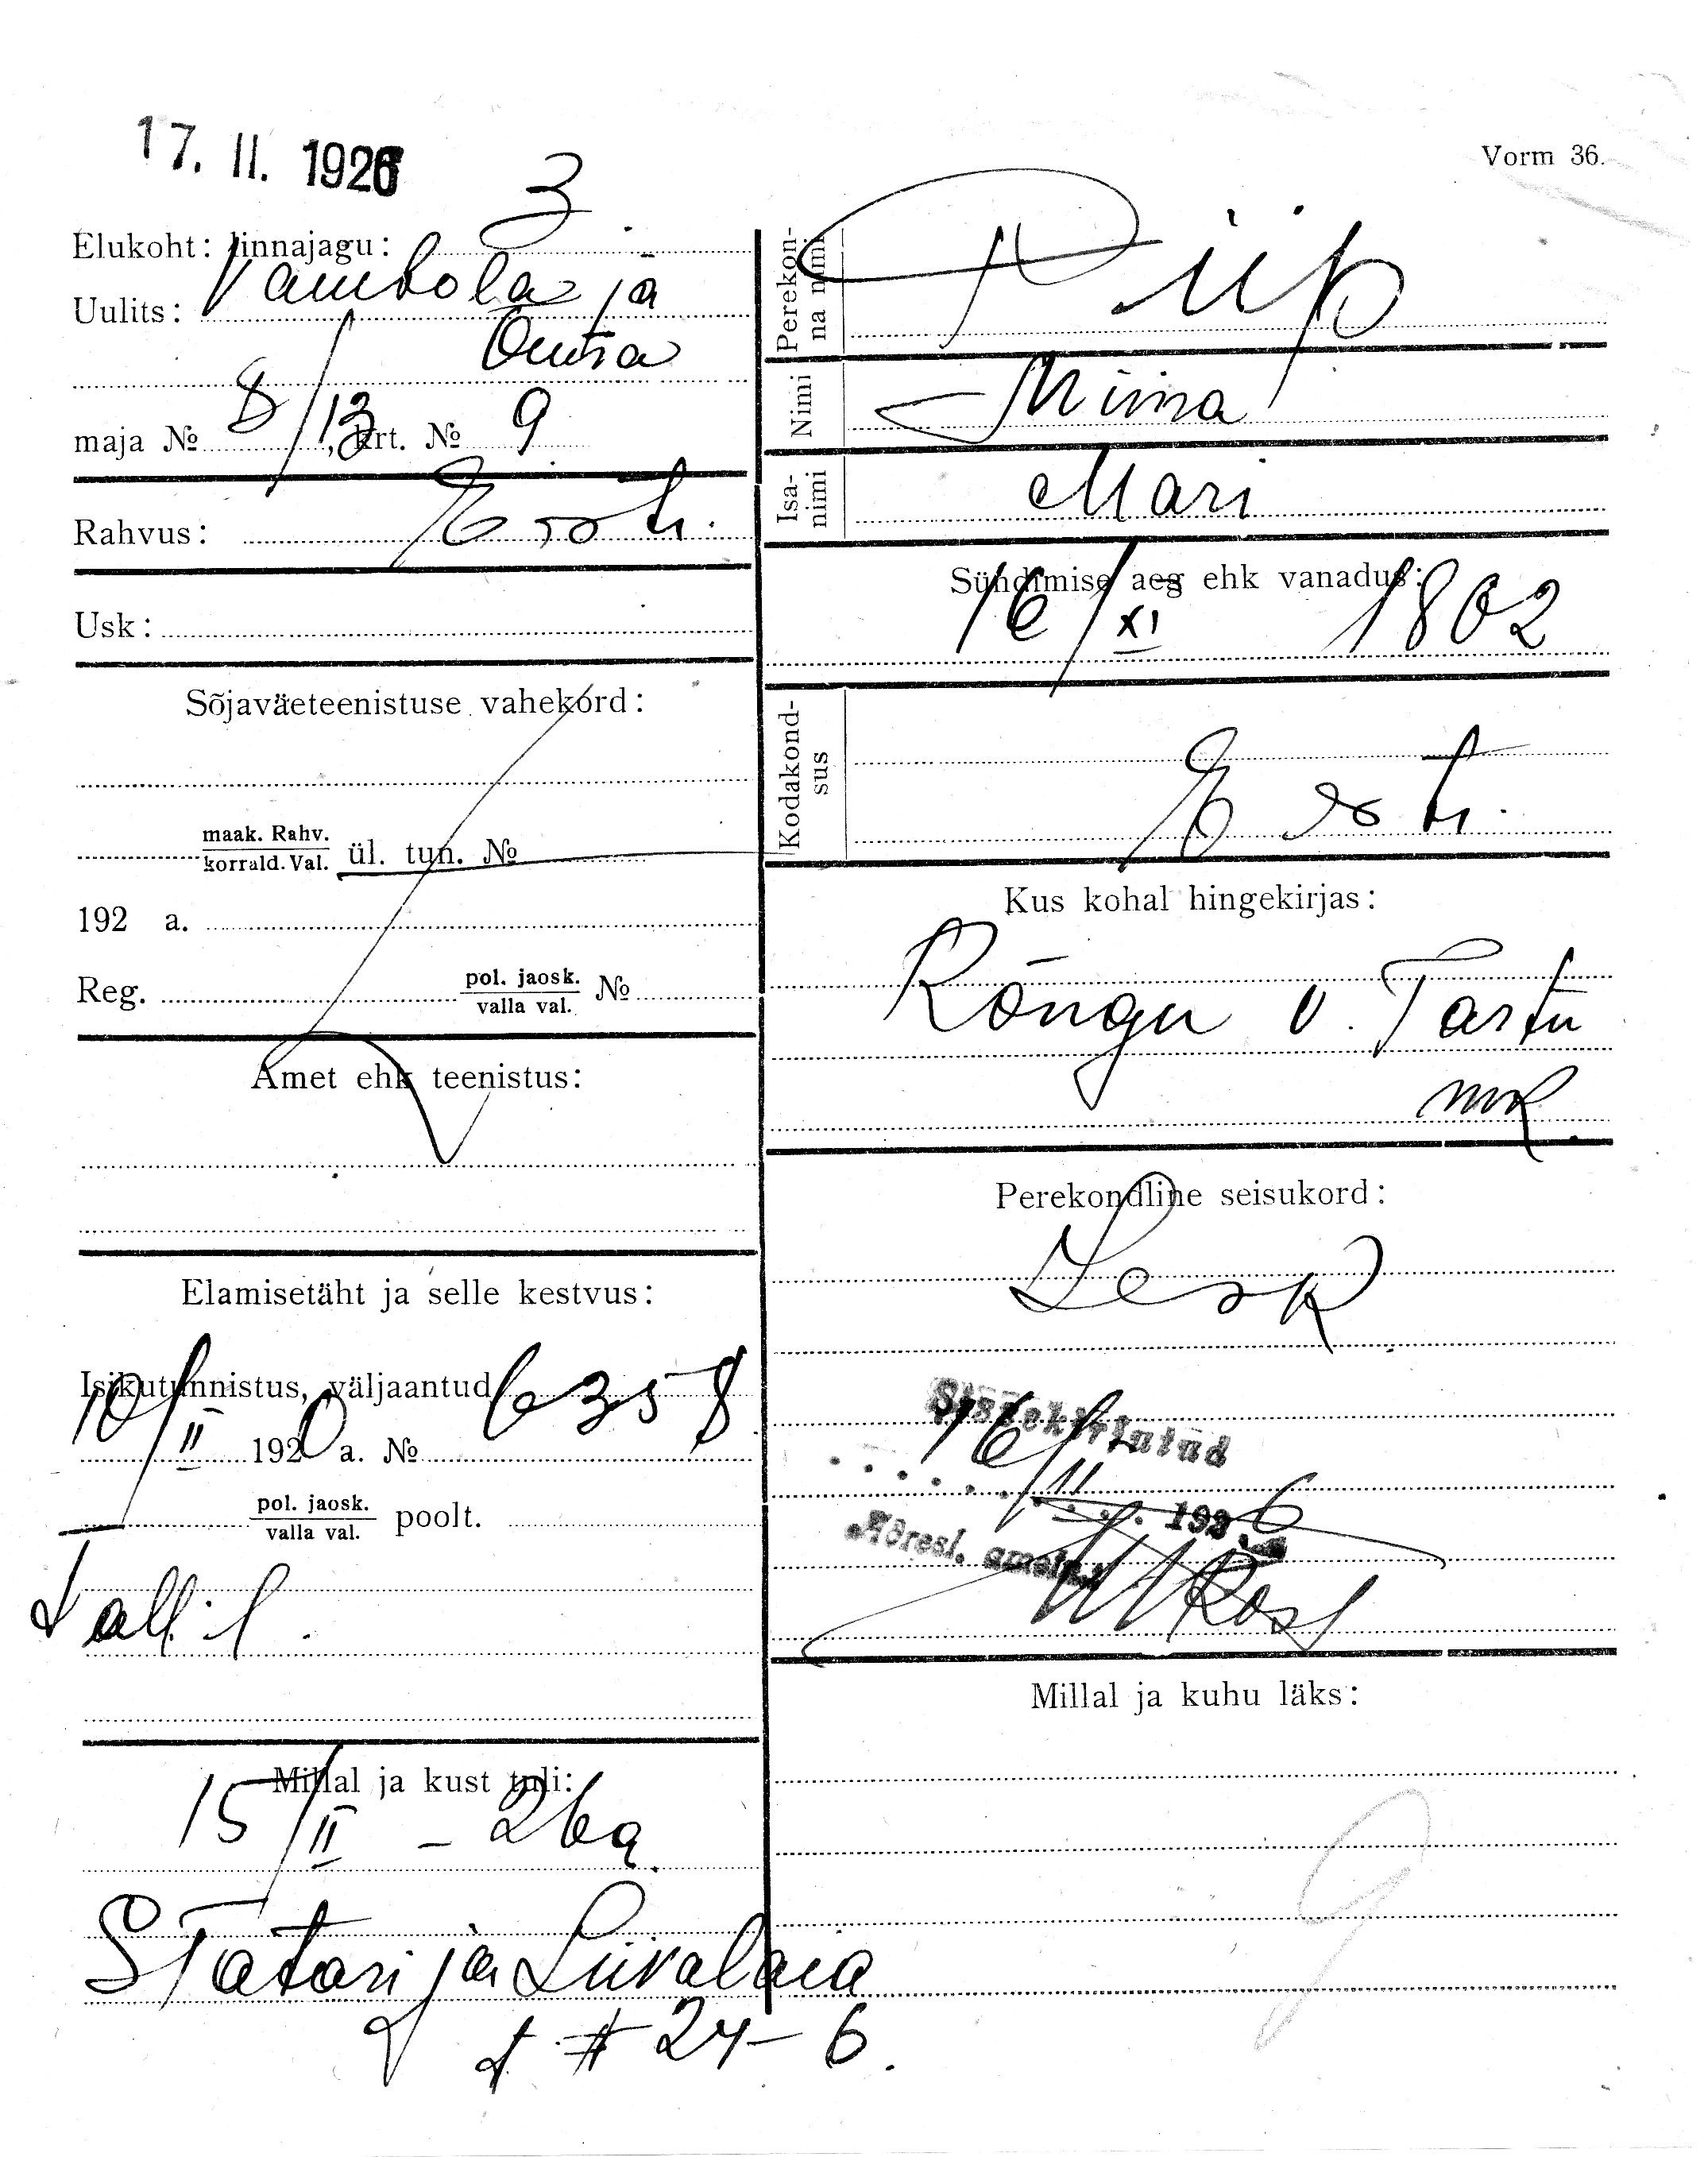 17. II. 1926
Vorm 36.
Elukoht: linnajagu: 3
Uulits: Vambola ja
Õunra
maja № 8/13, krt. № 9
Rahvus: Eesti.
Usk:
Sõjaväeteenistuse vahekord:
maak. Rahv.
korrald. Val. ül. tun. №
192 a.
Reg. pol. jaosk.
valla val. №
Amet ehk teenistus:
Elamisetäht ja selle kestvus:
Isikutunnistus, väljaantud
10/II 1920 a. № 6358
pol. jaosk.
valla val. poolt.
I
Tall. l.
Millal ja kust tuli:
15/II - 26 a.
S Tatari ja Liivalaia
t. # 24-6.
Perekon-
na nimi
Piip
Nimi
Miina
Isa-
nimi
Mari
Sündimise aeg ehk vanadus:
16/XI 1862
Kodakond-
sus
Eesti.
Kus kohal hingekirjas:
Rõngu v. Tartu
mk.
Perekondline seisukord:
Lesk
Sissekirjutud
16/II 1926
Adresl. ametn.
Ross
Millal ja kuhu läks: